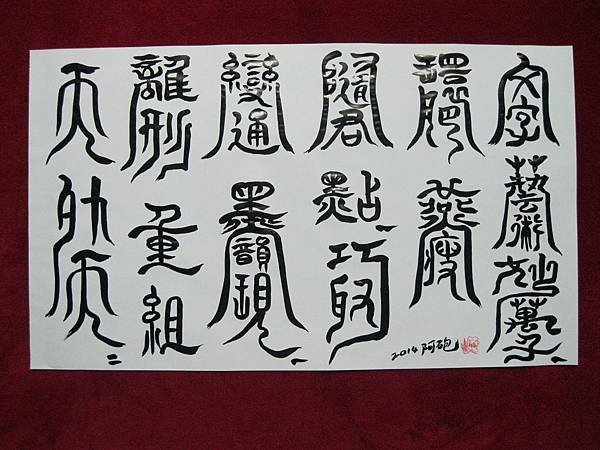 文字藝術妙萬
環肥燕瘦
隨君點巧
變通墨韻現
離形重組
天外天
2014 阿砲